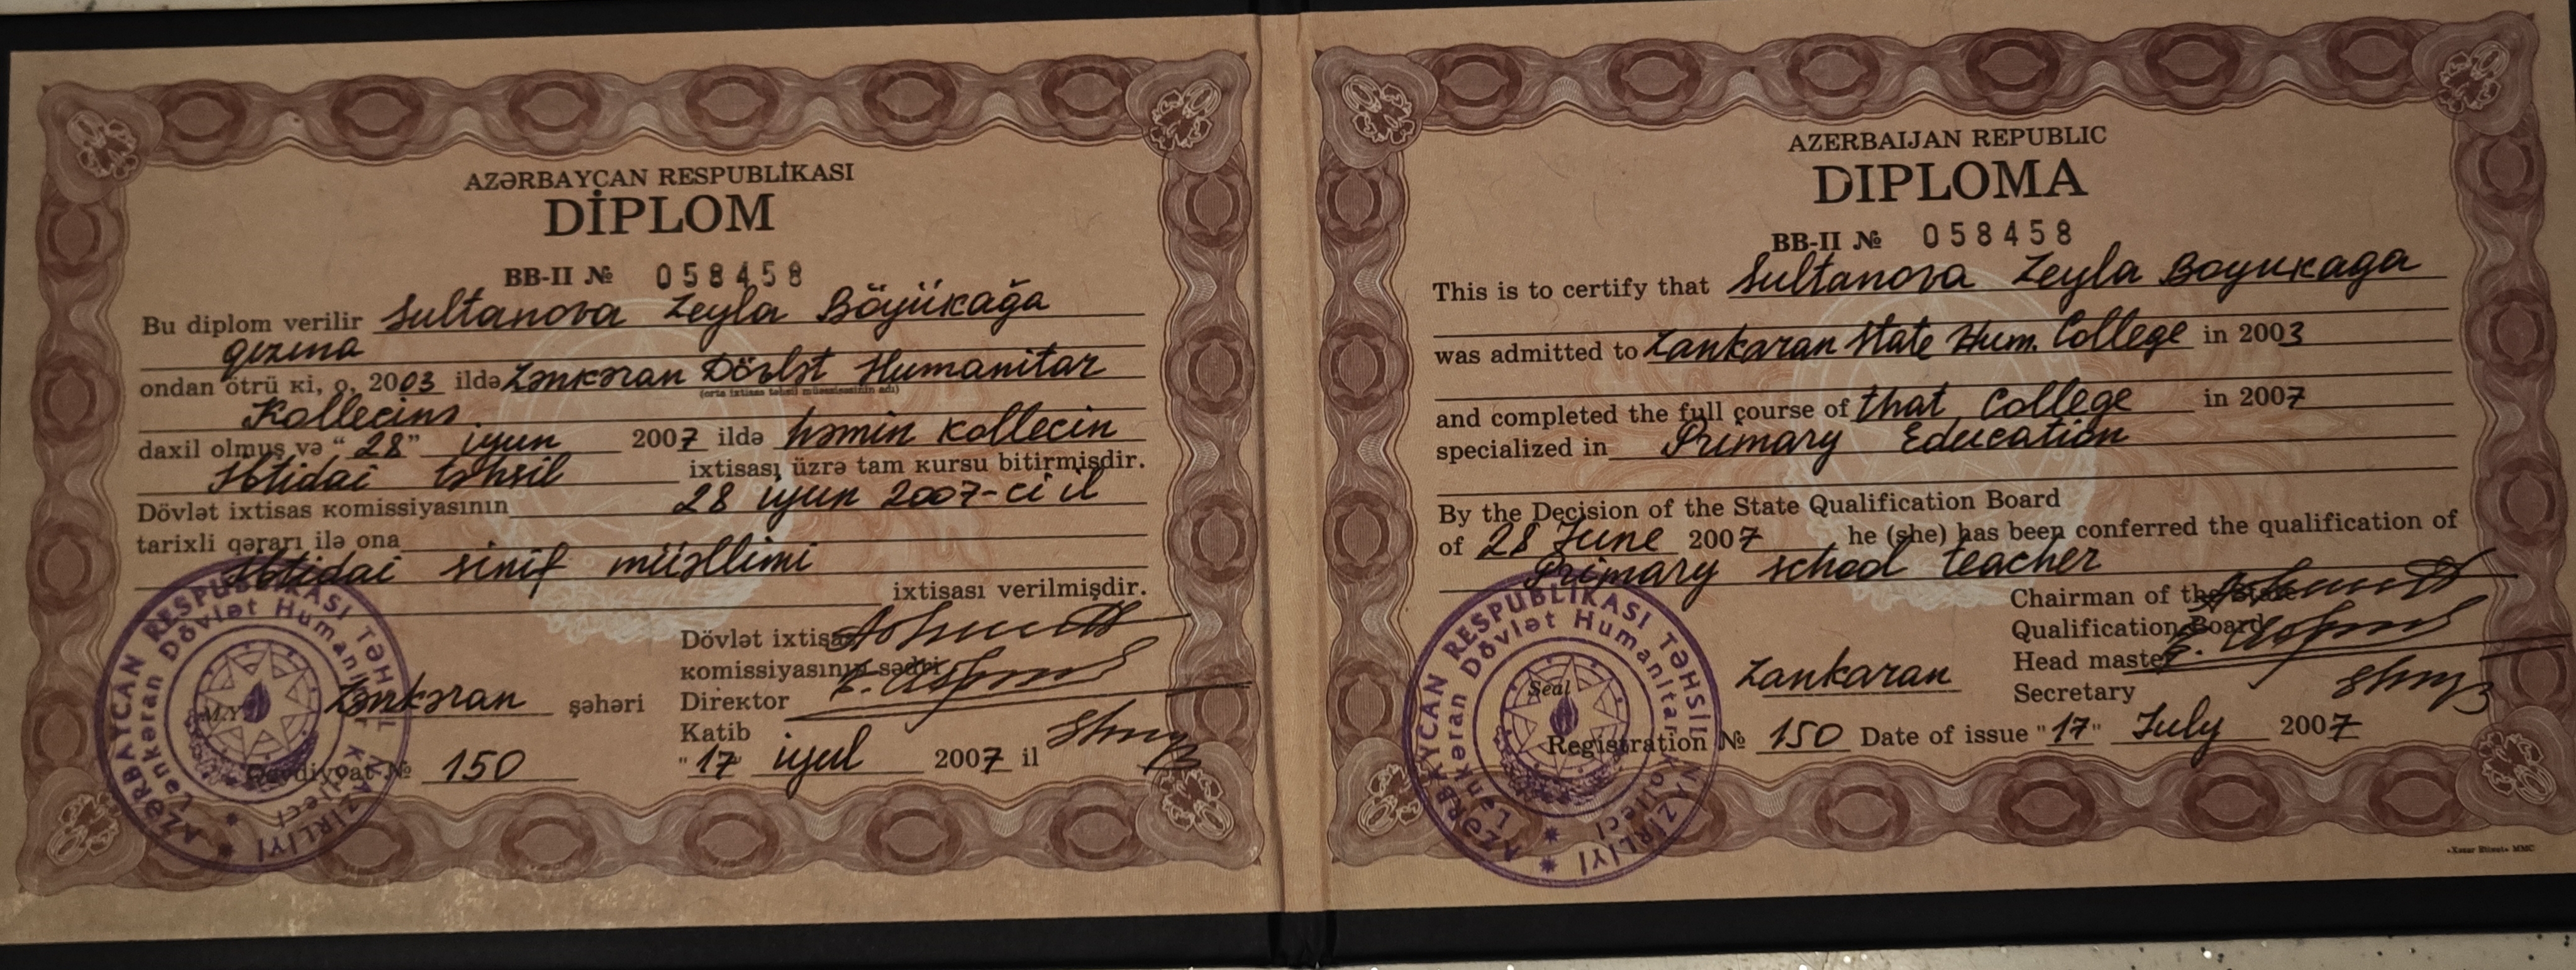 AZƏRBAYCAN RESPUBLİKASI
DİPLOM
BB-II № 058458
Bu diplom verilir Sultanova Leyla Böyükağa
qızına
ondan ötrü ki, o, 2003 ildə Lənkəran Dövlət Humanitar
(orta ixtisas təhsil müəssisəsinin adı)
Kollecinə
daxil olmuş və "28" iyun 2007 ildə həmin kollecin
İbtidai təhsil ixtisası üzrə tam kursu bitirmişdir.
Dövlət ixtisas komissiyasının 28 iyun 2007-ci il
tarixli qərarı ilə ona
İbtidai sinif müəllimi
ixtisası verilmişdir.
Dövlət ixtisas
komissiyasının sədri
Direktor
Katib
M.Y.
Lənkəran şəhəri
Qeydiyyat № 150 "17" iyul 2007 il
AZƏRBAYCAN RESPUBLİKASI TƏHSİL NAZİRLİYİ
Lənkəran Dövlət Humanitar Kolleci
AZERBAIJAN REPUBLIC
DIPLOMA
BB-II № 058458
This is to certify that Sultanova Leyla Boyukaga
was admitted to Lankaran State Hum. College in 2003
and completed the full course of that College in 2007
specialized in Primary Education
By the Decision of the State Qualification Board
of 28 June 2007 he (she) has been conferred the qualification of
Primary school teacher
Chairman of the State
Qualification Board
Head master
Secretary
Seal
Lankaran
Registration № 150 Date of issue "17" July 2007
AZƏRBAYCAN RESPUBLİKASI TƏHSİL NAZİRLİYİ
Lənkəran Dövlət Humanitar Kolleci